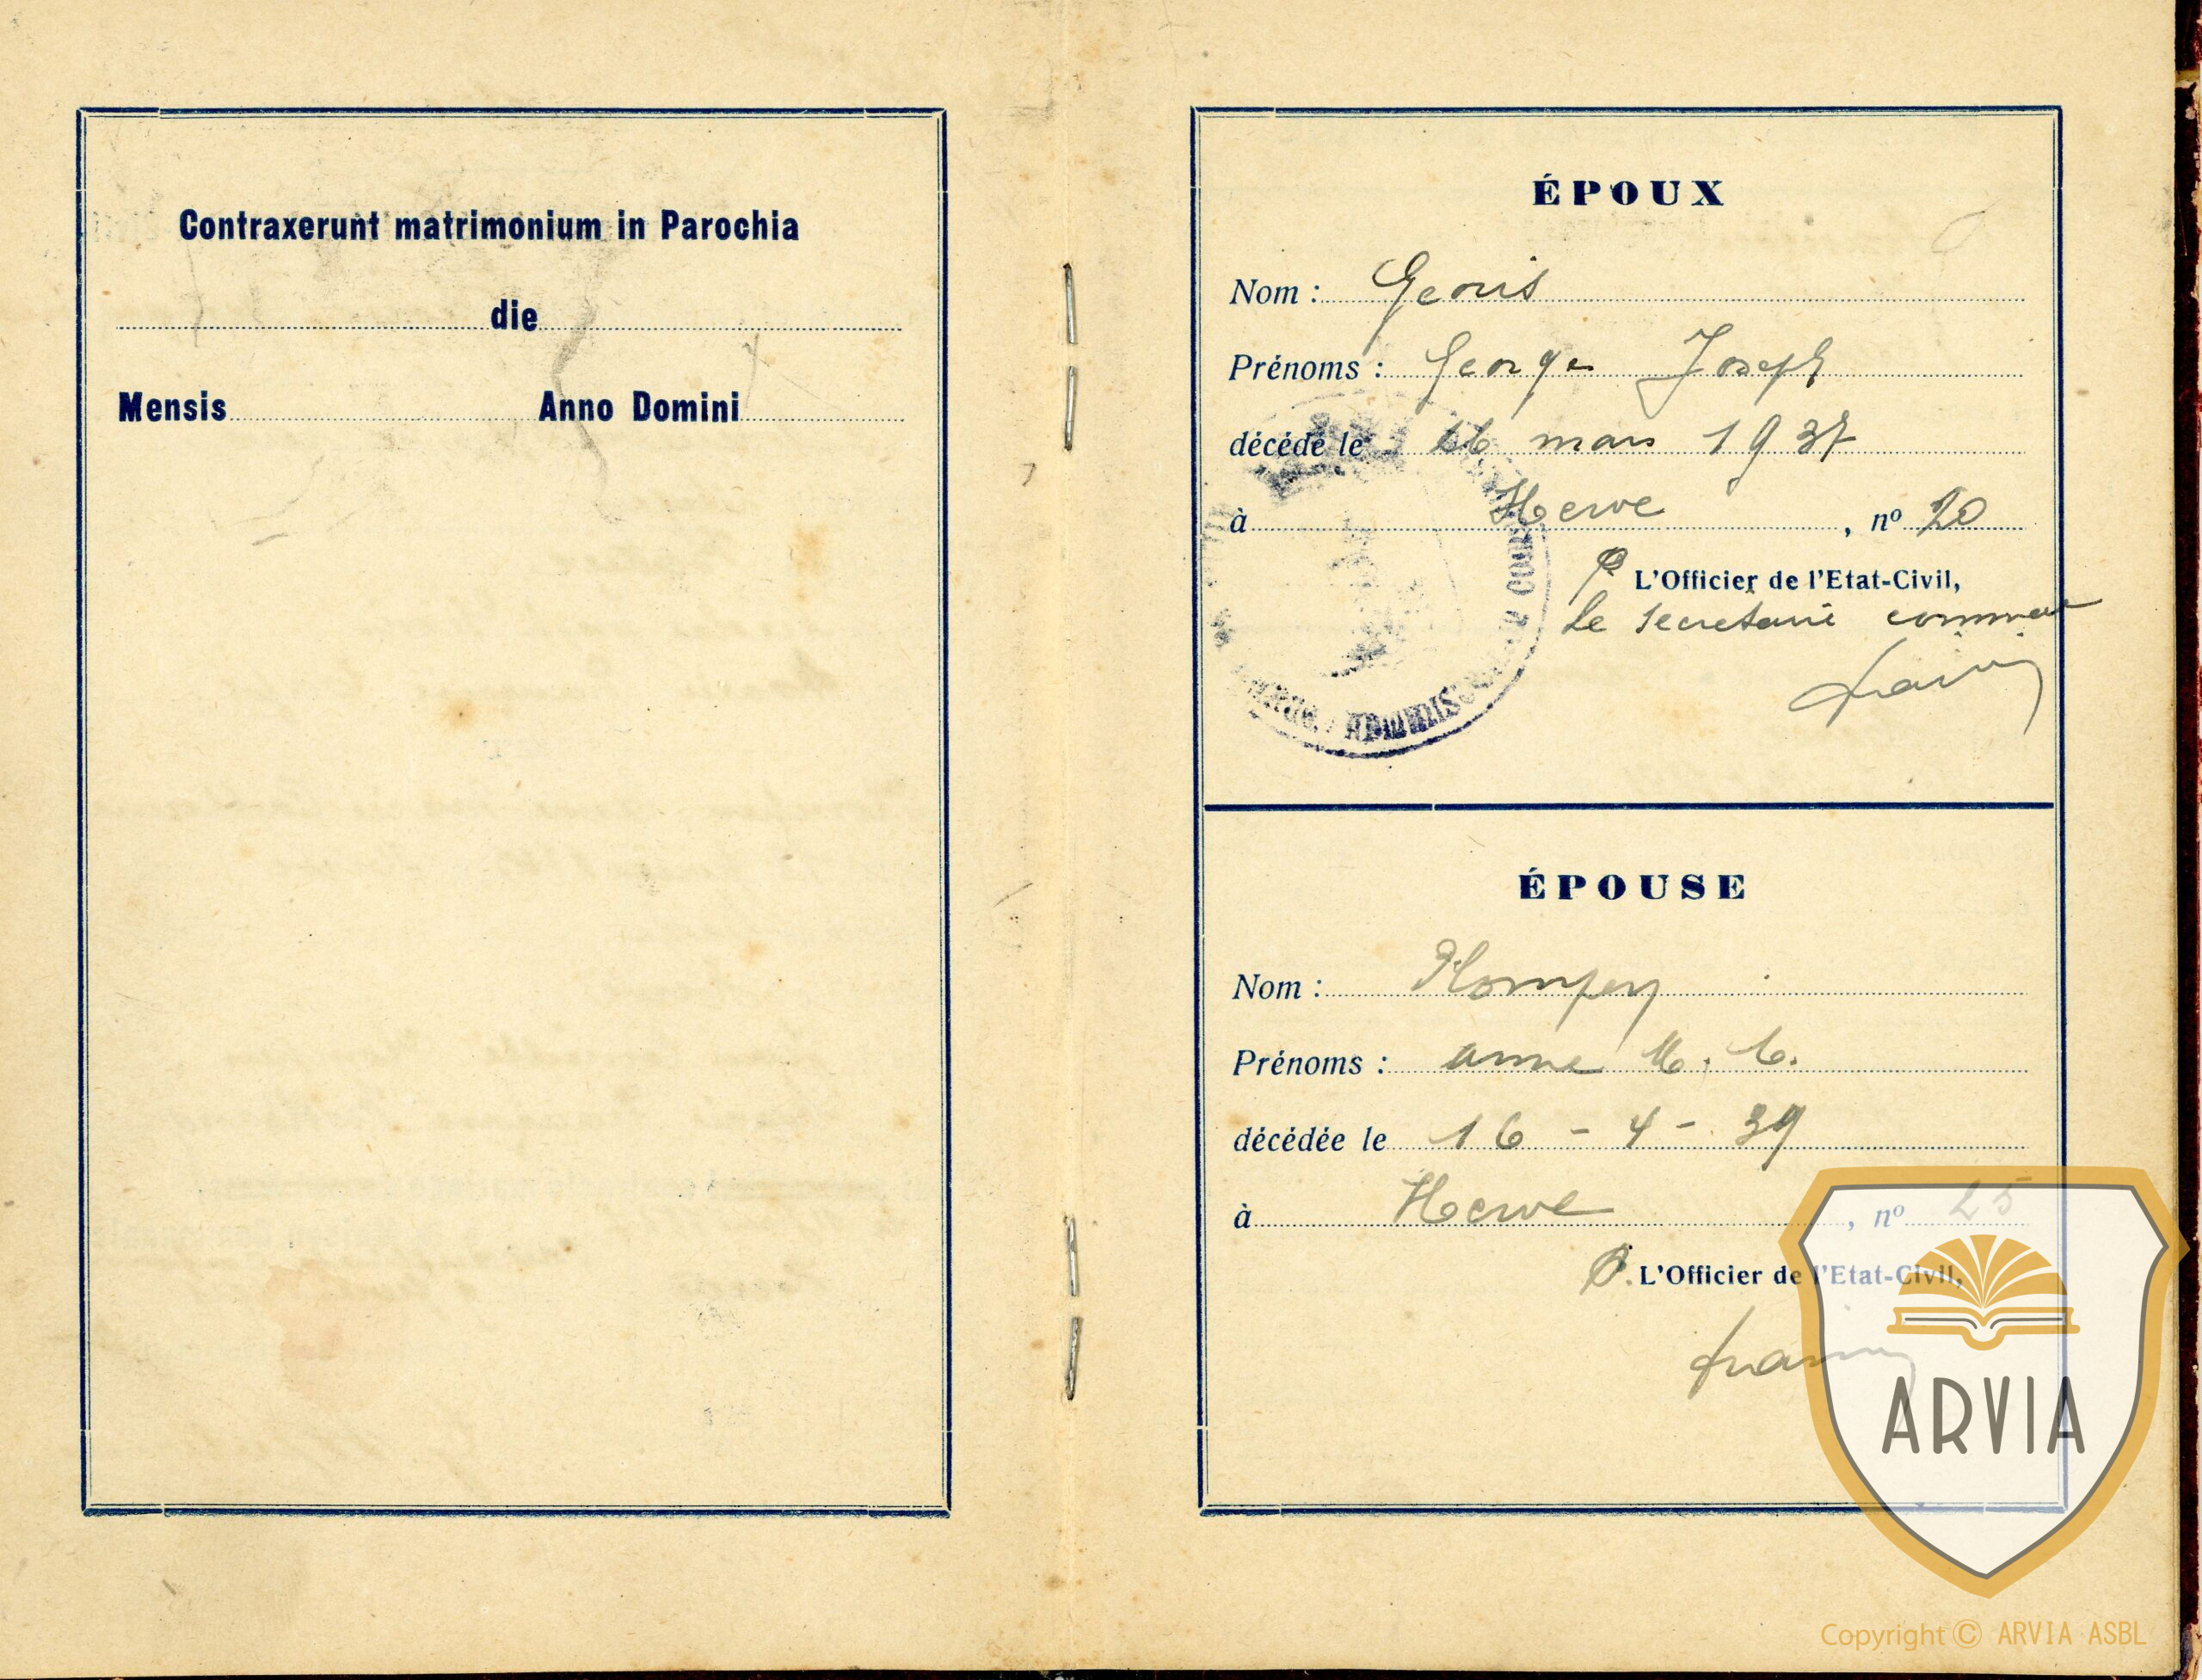 Contraxerunt matrimonium in Parochia
die
Mensis Anno Domini
ÉPOUX
Nom : Geouis
Prénoms : George Joseph
décédé le 16 mars 1937
à Herve , nº 20
P L'Officier de l'Etat-Civil,
Le secrétaire
ÉPOUSE
Nom : Plompen
Prénoms : anne M. C.
décédée le 16 - 4 - 39
à Herve , nº 25
P. L'Officier de l'Etat-Civil,
ARVIA
Copyright © ARVIA ASBL